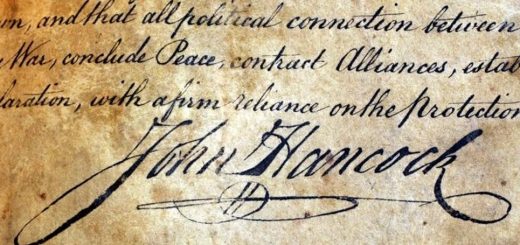 wn, and that all political connection between
War, conclude Peace, contract Alliances, estab
laration, with a firm reliance on the Protection
John Hancock